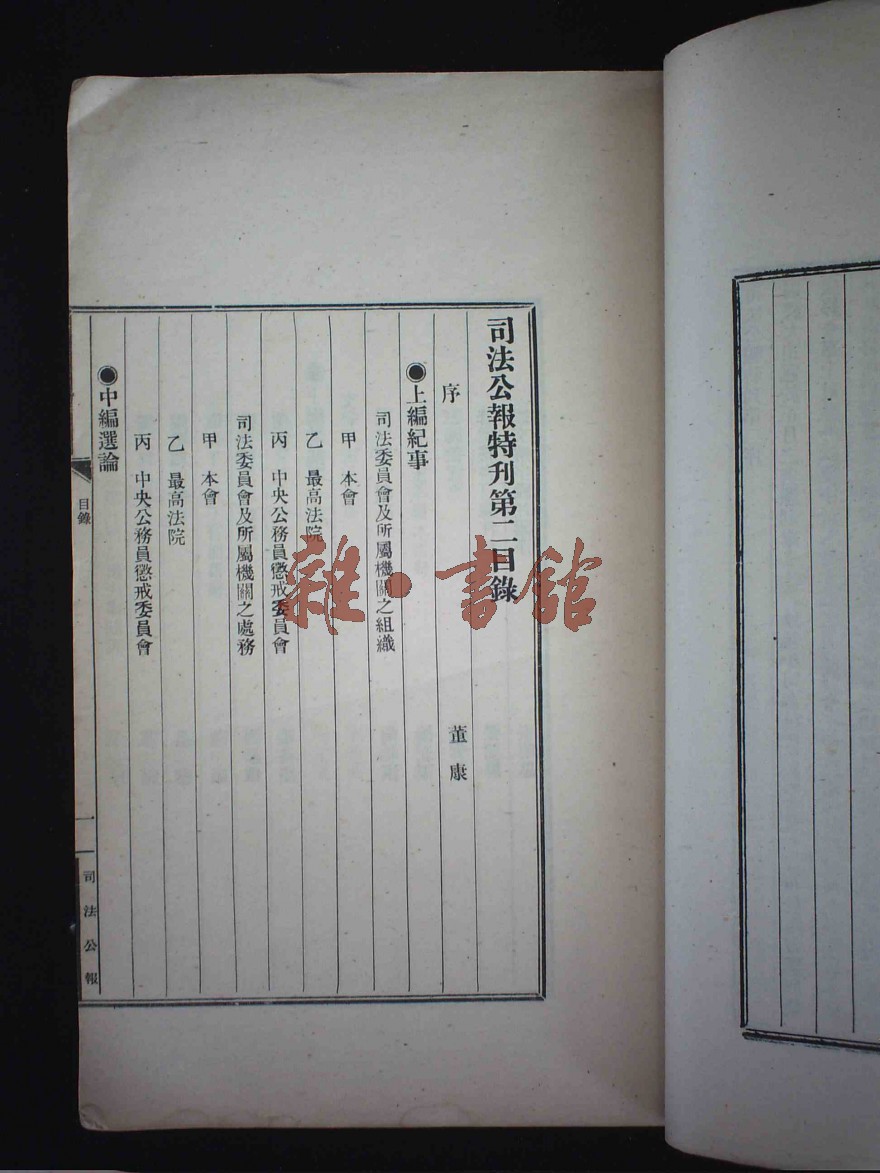 司法公報特刊第二目錄
序　董康
●上編紀事
司法委員會及所屬機關之組織
甲　本會
乙　最高法院
丙　中央公務員懲戒委員會
司法委員會及所屬機關之處務
甲　本會
乙　最高法院
丙　中央公務員懲戒委員會
●中編選論
目錄
一
司法公報
雜·書館